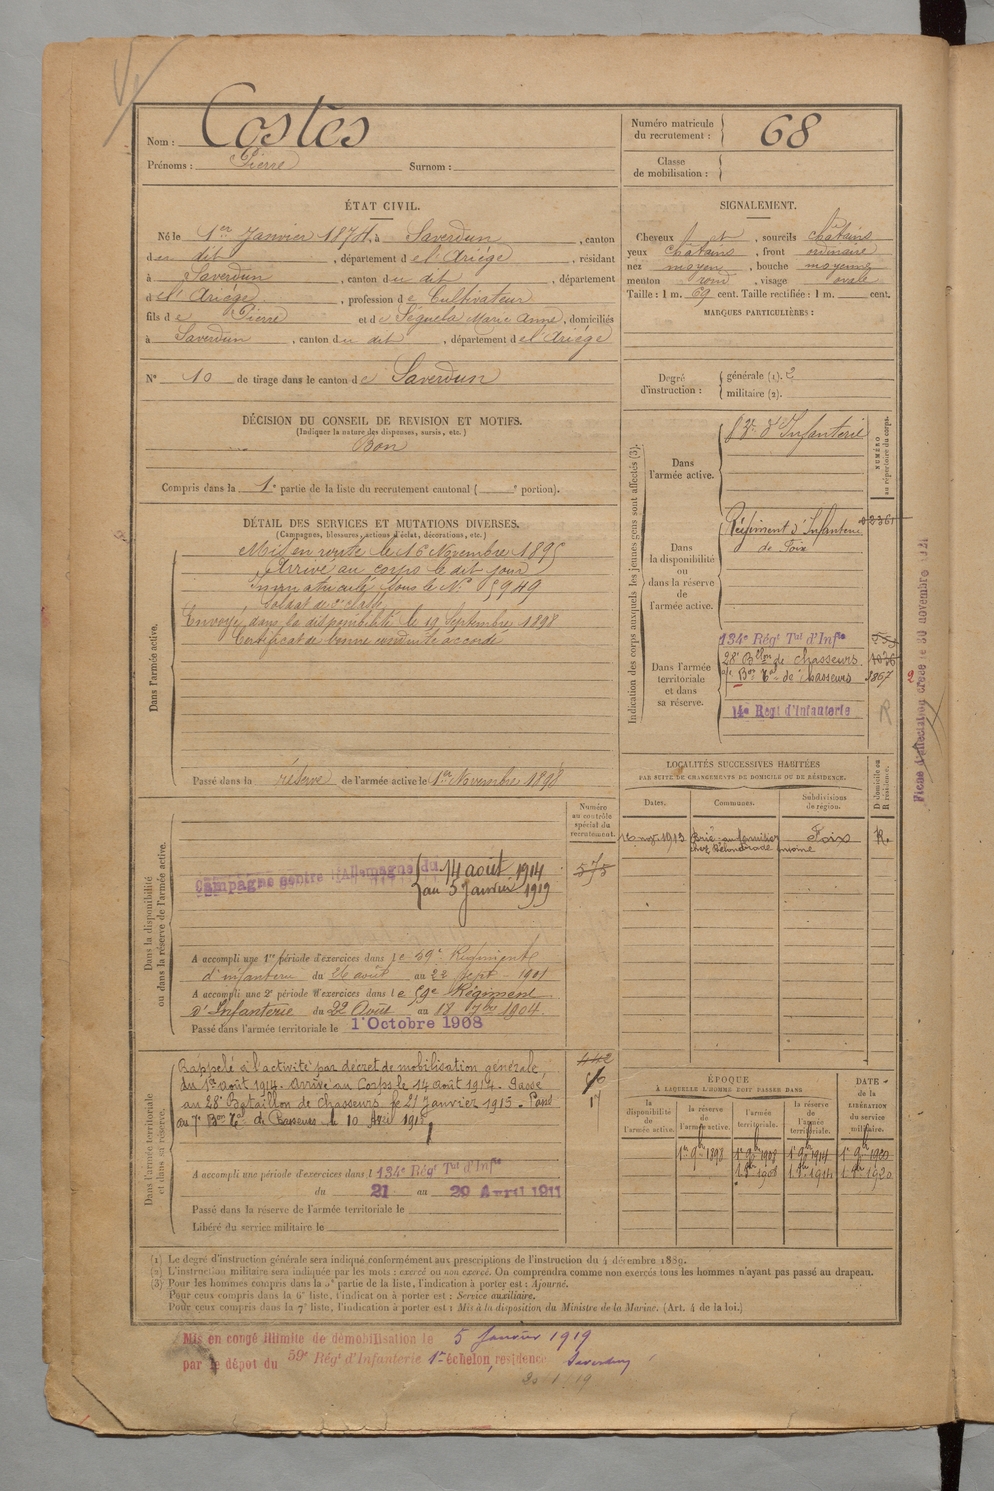 Nom : Costes
Prénoms : Pierre Surnom :
Numéro matricule du recrutement : 68
Classe de mobilisation :
ÉTAT CIVIL.
Né le 1er Janvier 1874, à Saverdun, canton
du dit, département de l'Ariège, résidant
à Saverdun, canton du dit, département
de l'Ariège, profession de Cultivateur
fils de Pierre et de Seguela Marie Anne, domiciliés
à Saverdun, canton du dit, département de l'Ariège
N° 10 de tirage dans le canton de Saverdun
SIGNALEMENT.
Cheveux , sourcils châtains
yeux châtains, front ordinaire
nez moyen, bouche moyenne
menton rond, visage ovale
Taille : 1 m. 69 cent. Taille rectifiée : 1 m. cent.
MARQUES PARTICULIÈRES :
Degré d'instruction : générale (1). 2
militaire (2).
DÉCISION DU CONSEIL DE REVISION ET MOTIFS.
(Indiquer la nature des dispenses, sursis, etc.)
Bon
Compris dans la 1e partie de la liste du recrutement cantonal ( e portion).
DÉTAIL DES SERVICES ET MUTATIONS DIVERSES.
(Campagnes, blessures, actions d'éclat, décorations, etc.)
Dans l'armée active.
Mis en route le 16 Novembre 1895
Arrivé au corps le dit jour
immatriculé sous le N°
Soldat de 2e classe
Envoyé dans la disponibilité le 19 Septembre 1898
Certificat de bonne conduite accordé
Passé dans la réserve de l'armée active le 1er Novembre 1898
Indication des corps auxquels les jeunes gens sont affectés (3).
NUMÉRO au répertoire du corps.
Dans l'armée active.
d'Infanterie
Dans la disponibilité ou dans la réserve de l'armée active.
Régiment d'Infanterie
de Foix
Dans l'armée territoriale et dans sa réserve.
134e Régt Tal d'Infie
28e Bllon de chasseurs
Bon Tal de Chasseurs 1867
14e Regt d'Infanterie
R
Fiche d'affectation créée le 30 novembre
LOCALITÉS SUCCESSIVES HABITÉES
PAR SUITE DE CHANGEMENTS DE DOMICILE OU DE RÉSIDENCE.
Dates. Communes. Subdivisions de région. D domicile ou R résidence.
1913 Brie Foix R.
Dans la disponibilité ou dans la réserve de l'armée active.
Numéro au contrôle spécial du recrutement.
Campagne contre l'Allemagne du 14 août 1914
au 5 Janvier 1919
575
A accompli une 1re période d'exercices dans le 59e Régiment
d'infanterie du 26 août au 22 Sept 1901
A accompli une 2e période d'exercices dans le 59e Régiment
d'Infanterie du 22 Août au 18 7bre 1904.
Passé dans l'armée territoriale le 1 Octobre 1908
Dans l'armée territoriale et dans sa réserve.
Rappelé à l'activité par décret de mobilisation générale,
du 1er août 1914. Arrivé au Corps le 14 août 1914. Passé
au 28e Bataillon de Chasseurs le 21 Janvier 1915. Passé
au 7e Bon Tal de Chasseurs le 10 Avril 1918
442
17
A accompli une période d'exercices dans l 134e Régt Tal d'Infie
du 21 au 29 Avril 1911
Passé dans la réserve de l'armée territoriale le
Libéré du service militaire le
ÉPOQUE
À LAQUELLE L'HOMME DOIT PASSER DANS
la disponibilité de l'armée active. la réserve de l'armée active. l'armée territoriale. la réserve de l'armée territoriale.
DATE DE LA LIBÉRATION du service militaire.
1er 9bre 1898 1er 9bre 1908 1er 9bre 1914 1er 9bre 1920
1908 1914 1920
(1) Le degré d'instruction générale sera indiqué conformément aux prescriptions de l'instruction du 4 décembre 1889.
(2) L'instruction militaire sera indiquée par les mots : exercé ou non exercé. On comprendra comme non exercés tous les hommes n'ayant pas passé au drapeau.
(3) Pour les hommes compris dans la 5e partie de la liste, l'indication à porter est : Ajourné.
Pour ceux compris dans la 6e liste, l'indication à porter est : Service auxiliaire.
Pour ceux compris dans la 7e liste, l'indication à porter est : Mis à la disposition du Ministre de la Marine. (Art. 4 de la loi.)
Mis en congé illimité de démobilisation le 5 Janvier 1919
par le dépôt du 59e Régt d'Infanterie 1er échelon, résidence Saverdun